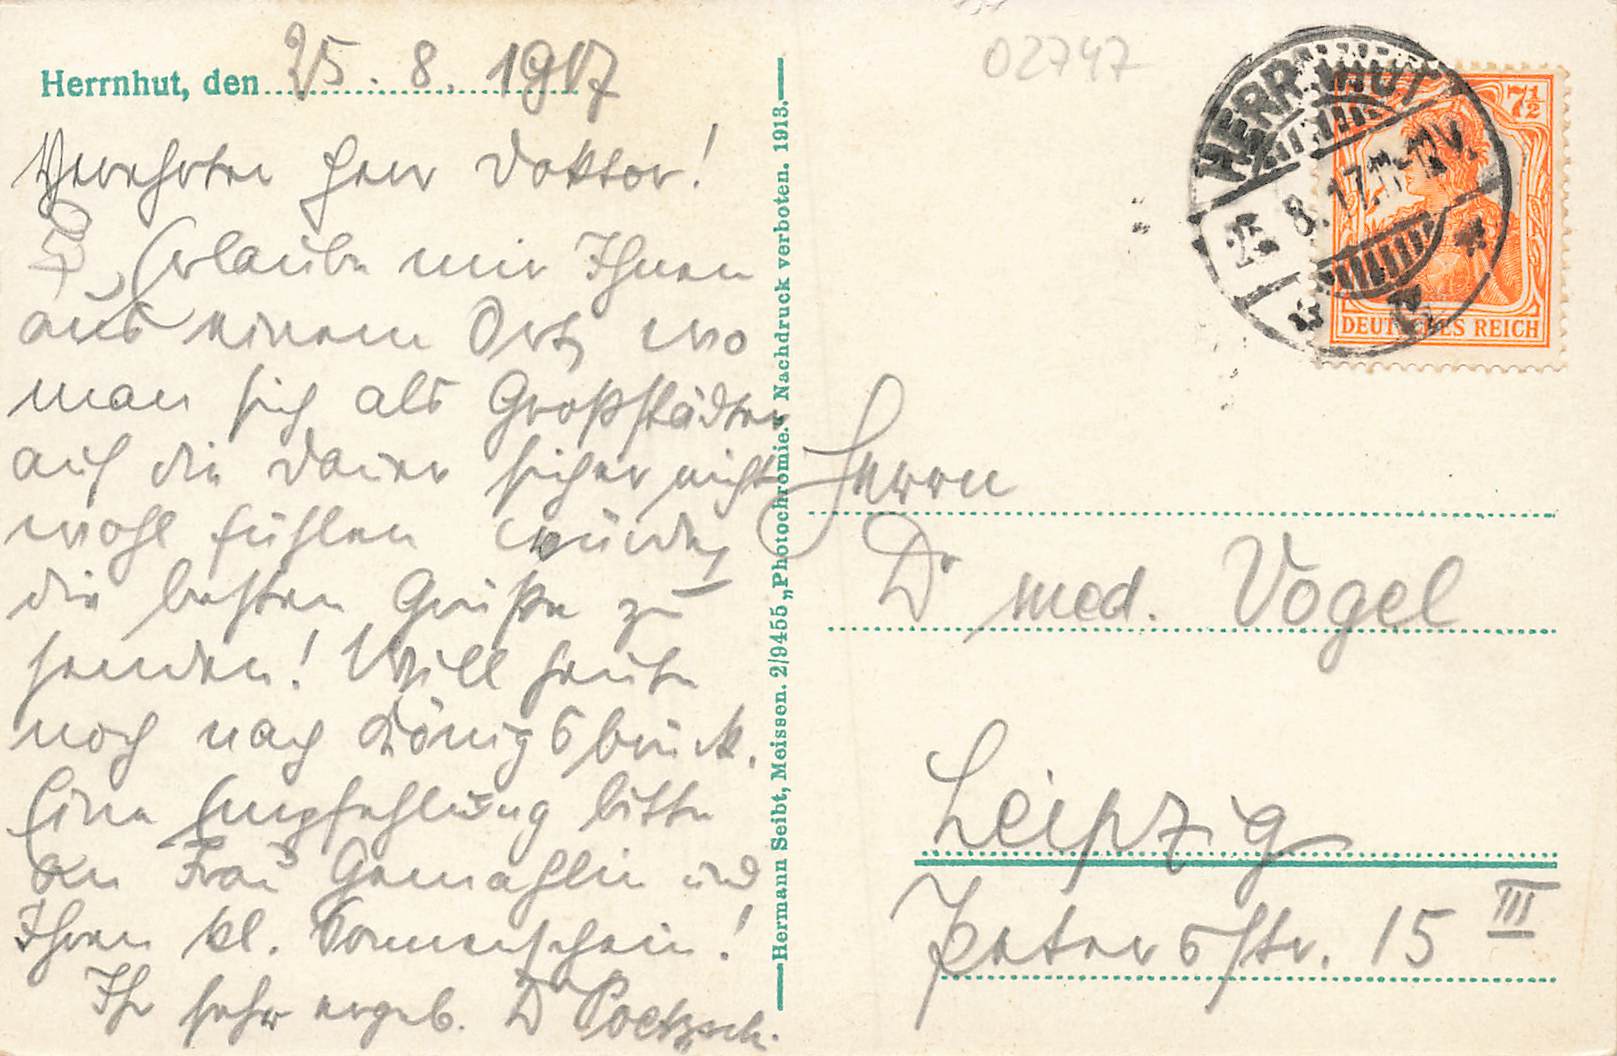 Herrnhut, den 25. 8. 1917
Verehrter Herr Doktor!
Erlaube mir Ihnen
aus einem Ort, wo
man sich als Großstädter
auf die Dauer sicher nicht
wohl fühlen würde,
die besten Grüße zu
senden! Will heute
noch nach Königsbrück.
Eine Empfehlung bitte
an Frau Gemahlin und
Ihren kl. Sonnenschein!
Ihr sehr ergeb. D Poetzsch.
Hermann Seibt, Meissen. 2/9455 „Photochromie.“ Nachdruck verboten. 1913.
02747
HERRNHUT
25. 8. 17. 11-12V.
7½
DEUTSCHES REICH
Herrn
Dr med. Vogel
Leipzig
Petersstr. 15 III